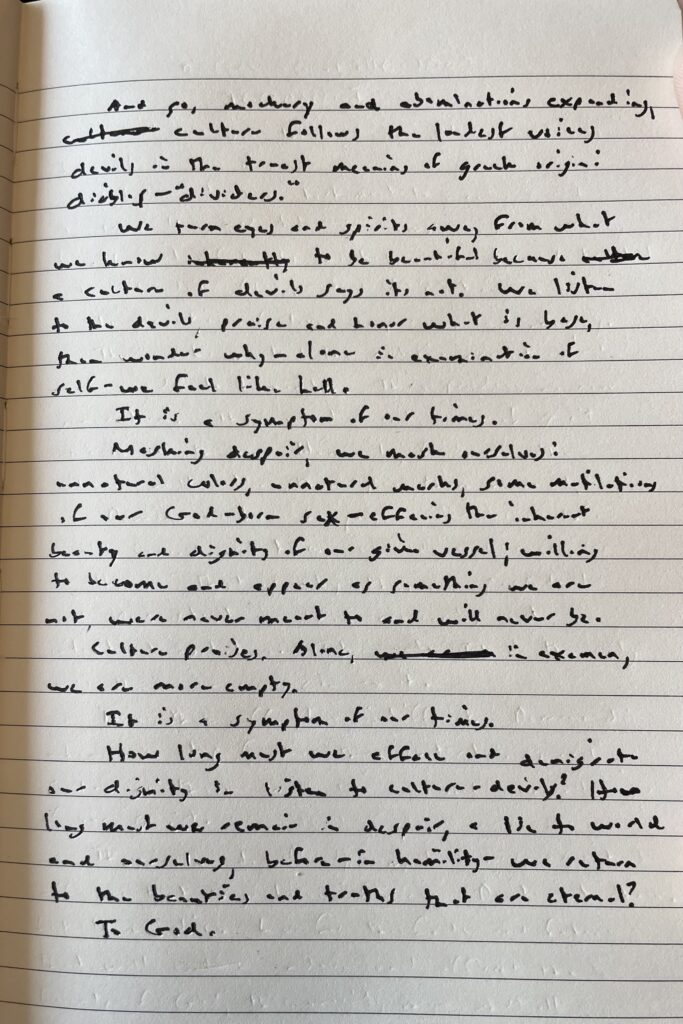 And so, mockery and abominations expanding,
culture culture follows the loudest voices
devils in the truest meaning of greek origin:
diablos—"dividers."
We turn eyes and spirits away from what
we know inherently to be beautiful because
a culture of devils says its not. We listen
to the devils, praise and honor what is base,
then wonder why—alone in examination of
self—we feel like hell.
It is a symptom of our times.
Masking despair, we mask ourselves:
unnatural colors, unnatural marks, some mutilations
of our God-born sex—effacing the inherent
beauty and dignity of our given vessel; willing
to become and appear as something we are
not, were never meant to and will never be.
Culture praises. Alone, in examen,
we are more empty.
It is a symptom of our times.
How long must we efface and denigrate
our dignity in listen to culture-devils? How
long must we remain in despair, a lie to world
and ourselves, before—in humility—we return
to the beauties and truths that are eternal?
To God.